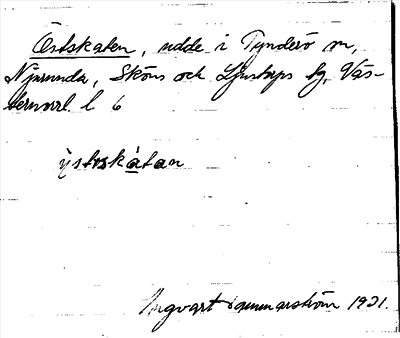 Östskaten, udde i Tynderö sn,
Njurunda, Sköns och Ljustorps tg, Väs-
ternorrl. l. 6
ÿstskàtan
Ingvart Hammarström 1921.